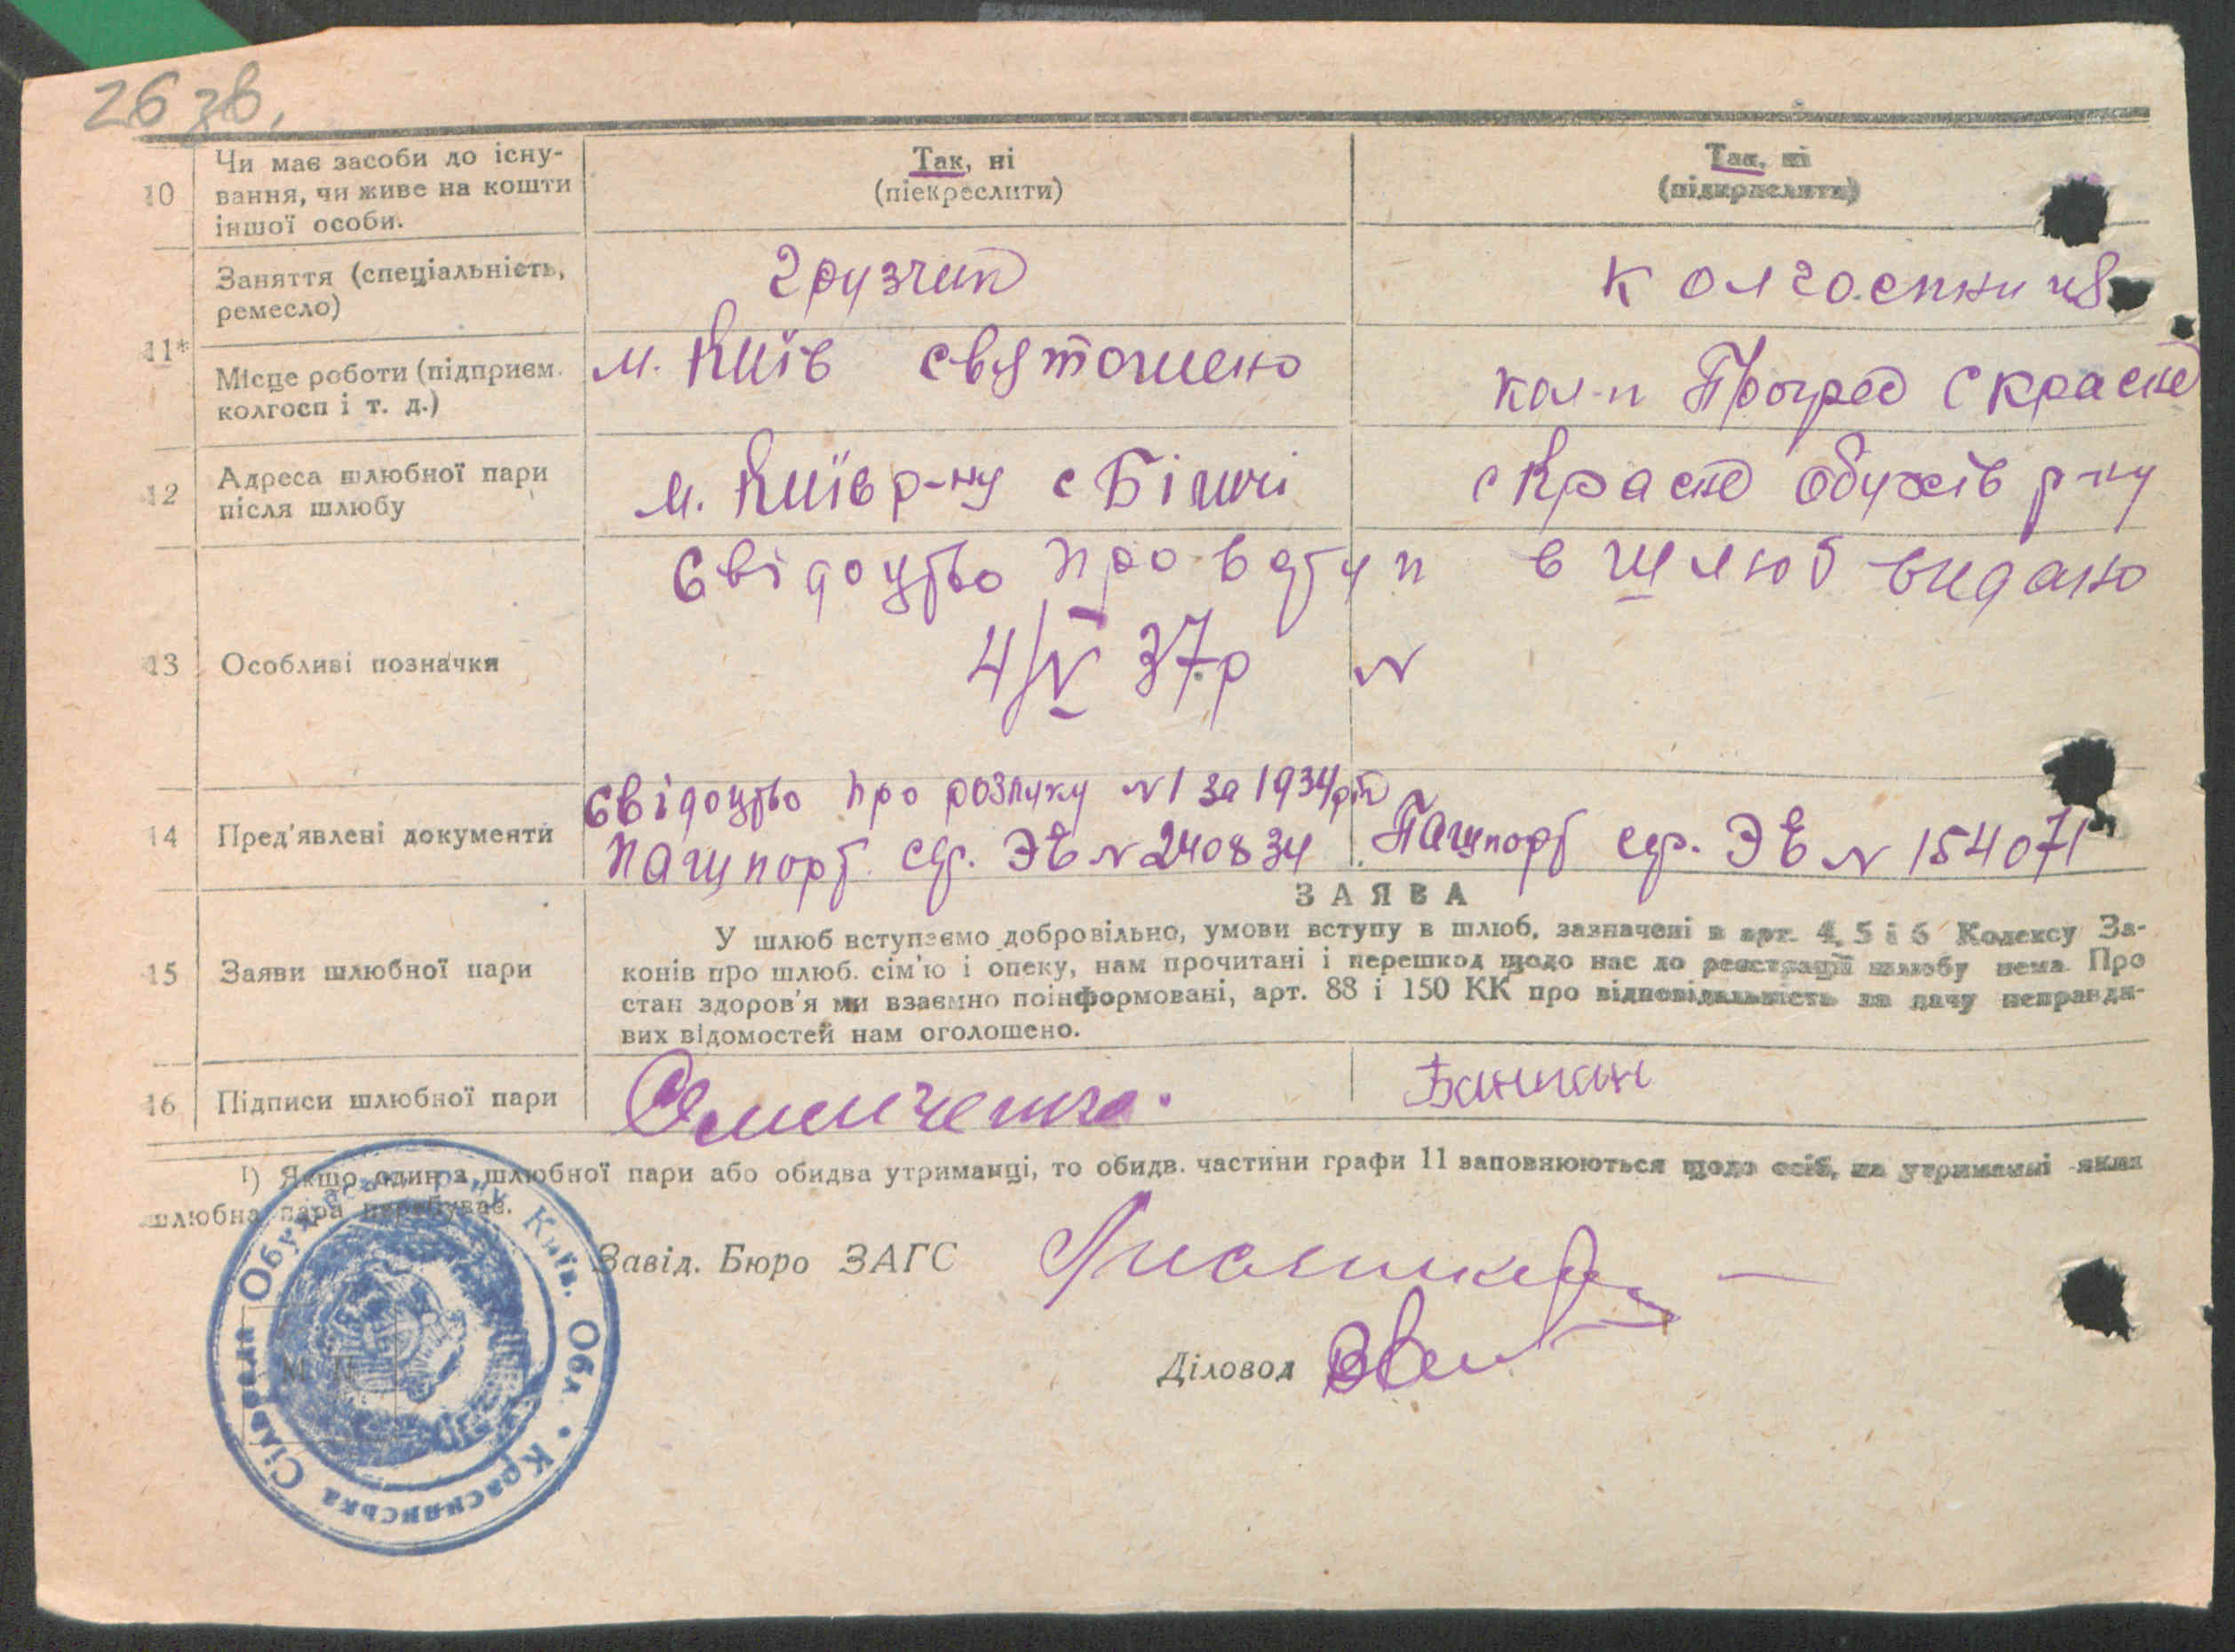 26 зв.
10 Чи має засоби до існу- Так, ні Так, ні
вання, чи живе на кошти (піекреслити) (підкреслити)
іншої особи.
Заняття (спеціальність, грузчик колгоспниця
ремесло)
11*
Місце роботи (підприєм. м. Київ святошено кол-п Прогрес с Красне
колгосп і т. д.)
12 Адреса шлюбної пари м. Київ р-ну с Біличі с Красне Обухів р-ну
після шлюбу
Свідоцтво про вступ в шлюб видано
4/V 37 р №
13 Особливі позначки
Свідоцтво про розлуку №1 за 1934 рік
14 Пред'явлені документи Пашпорт сер. ЭЪ № 240834 Пашпорт сер. ЭЪ № 154071
ЗАЯВА
У шлюб вступаємо добровільно, умови вступу в шлюб, зазначені в арт. 4, 5 і 6 Кодексу За-
15 Заяви шлюбної пари конів про шлюб. сім'ю і опеку, нам прочитані і перешкод щодо нас до реєстрації шлюбу нема. Про
стан здоров'я ми взаємно поінформовані, арт. 88 і 150 КК про відповідальність за дачу неправди-
вих відомостей нам оголошено.
16 Підписи шлюбної пари
1) Якщо один з шлюбної пари або обидва утриманці, то обидв. частини графи 11 заповнюються щодо осіб, на утриманні яких
шлюбна пара перебуває.
Завід. Бюро ЗАГС
Діловод
М П
Краснянська Сільрада Обухівського р-ну Київ. Обл.